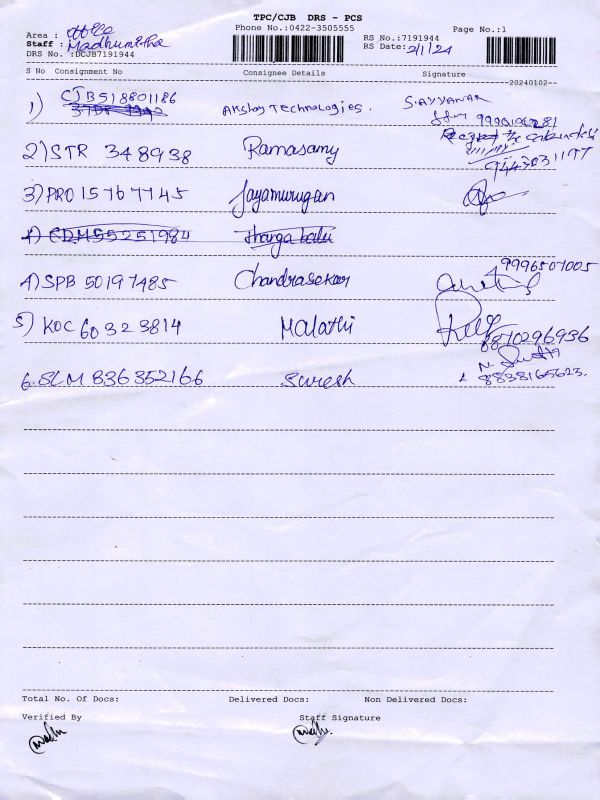 TPC/CJB DRS - PCS
Phone No.:0422-3505555
Page No.:1
Area : office
Staff : Madhumitha
RS No.:7191944
RS Date: 2/1/24
DRS No. :DCJB7191944
S No Consignment No Consignee Details Signature
20240102
1) CJB518801186 Akshay Technologies. S.AYYANAR
2) STR 348938 Ramasamy 9443031197
3) PRO 15767745 Jayamurugan
4) CDM55251984 Thangabalu
4) SPB 50197485 Chandrasekar 9996507005
5) KOC 60323814 Malathi 8870296936
6. SLM 836352166 Suresh 8838165623.
Total No. Of Docs: Delivered Docs: Non Delivered Docs:
Verified By Staff Signature